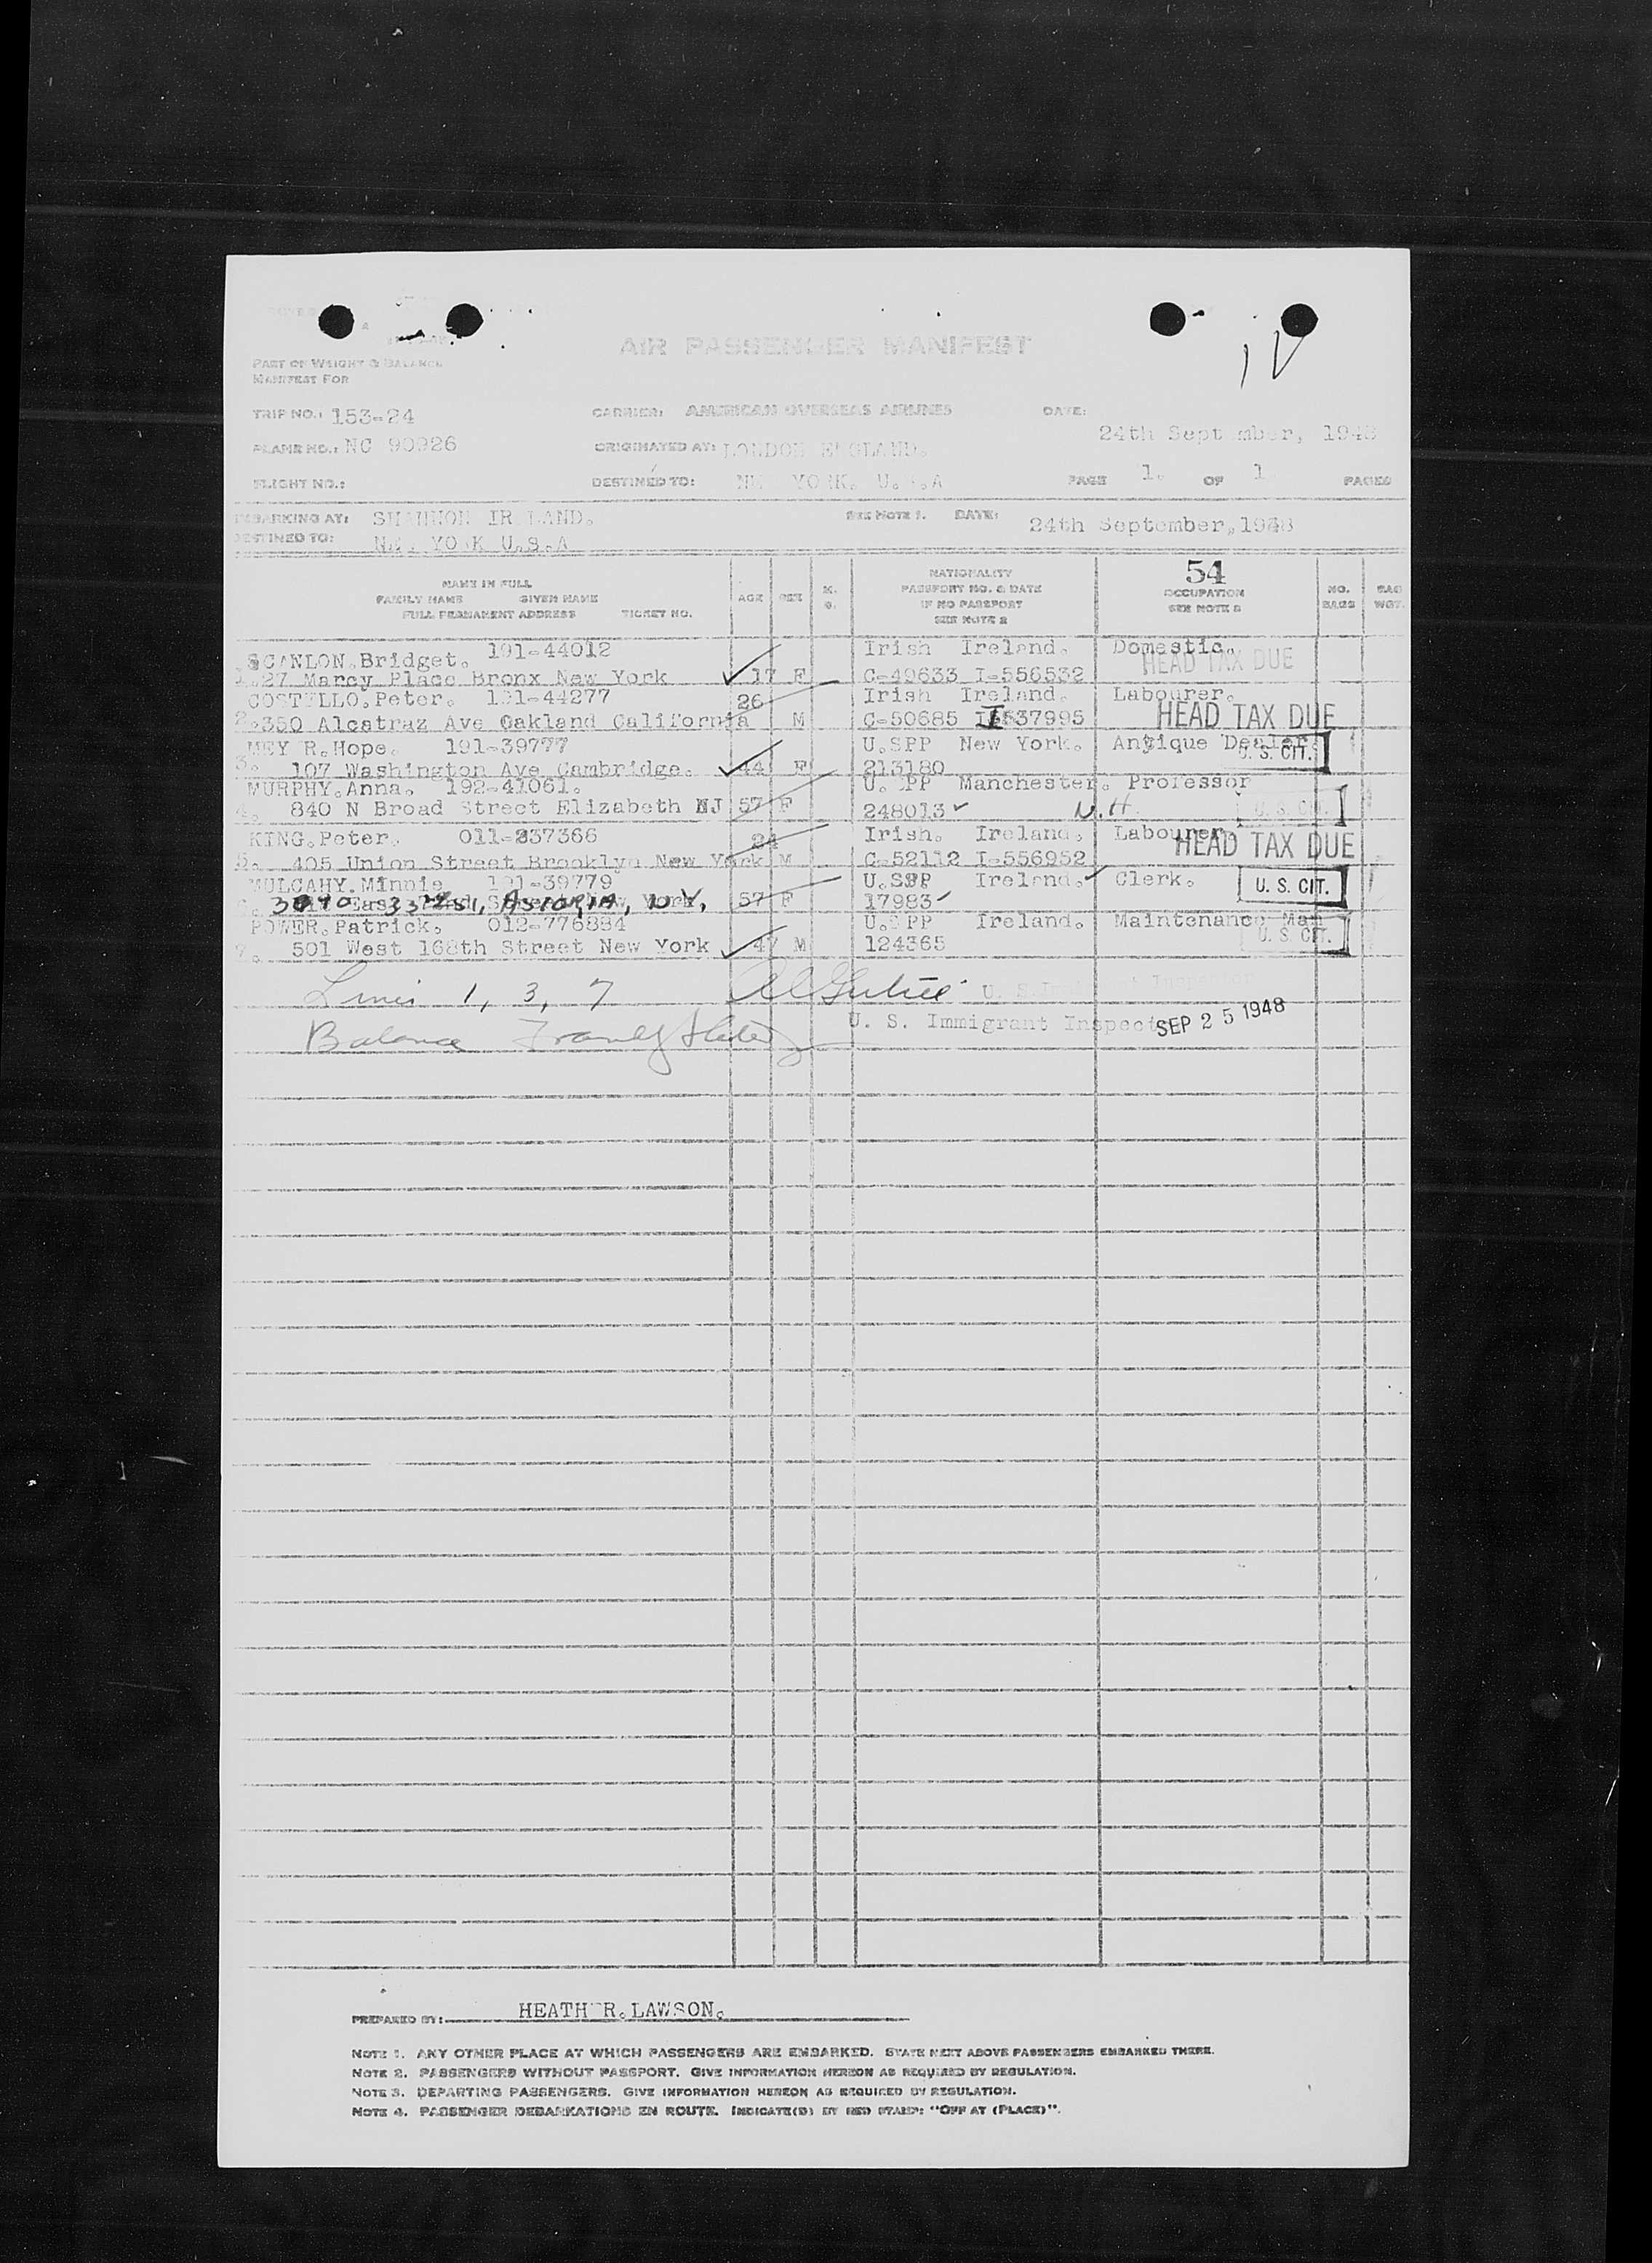 AIR PASSENGER MANIFEST
PART OF WEIGHT & BALANCE
MANIFEST FOR
TRIP NO.: 153-24 CARRIER: AMERICAN OVERSEAS AIRLINES DATE: 24th September, 1948
PLANE NO.: NC 90926 ORIGINATED AT: LONDON ENGLAND.
FLIGHT NO.: DESTINED TO: NEW YORK. U.S.A PAGE 1. OF 1 PAGES
EMBARKING AT: SHANNON IRELAND. SEE NOTE 1. DATE: 24th September, 1948
DESTINED TO: NEW YORK U.S.A
54
NAME IN FULL
FAMILY NAME GIVEN NAME
FULL PERMANENT ADDRESS TICKET NO.
AGE SEX
NATIONALITY
PASSPORT NO. & DATE
IF NO PASSPORT
SEE NOTE 2
OCCUPATION
SEE NOTE 3
NO. BAGS
BAG WGT.
SCANLON. Bridget. 191-44012 Irish Ireland. Domestic.
1. 27 Marcy Place Bronx New York 17 F C-49633 I-556532 HEAD TAX DUE
COSTELLO. Peter. 191-44277 26 Irish Ireland. Labourer.
2. 350 Alcatraz Ave Oakland California M C-50685 I 537995 HEAD TAX DUE
MEY R. Hope. 191-39777 U.SPP New York. Antique Dealer.
3. 107 Washington Ave Cambridge. 44 F 213180 U. S. CIT.
MURPHY. Anna. 192-41061. U.SPP Manchester. Professor
4. 840 N Broad Street Elizabeth NJ 57 F 248013 N.H. U. S. CIT.
KING. Peter. 011-237366 24 Irish. Ireland. Labourer.
5. 405 Union Street Brooklyn New York M C-52112 I-556952 HEAD TAX DUE
MULCAHY. Minnie 191-39779 U.SPP Ireland. Clerk.
ASTORIA, N.Y. 57 F 17983 U. S. CIT.
POWER. Patrick. 012-776884 U.SPP Ireland. Maintenance Man
7. 501 West 168th Street New York 47 M 124365 U. S. CIT.
Lines 1, 3, 7
U. S. Immigrant Inspector
SEP 25 1948
Balance
PREPARED BY: HEATHER. LAWSON.
NOTE 1. ANY OTHER PLACE AT WHICH PASSENGERS ARE EMBARKED. STATE NEXT ABOVE PASSENGERS EMBARKED THERE.
NOTE 2. PASSENGERS WITHOUT PASSPORT. GIVE INFORMATION HEREON AS REQUIRED BY REGULATION.
NOTE 3. DEPARTING PASSENGERS. GIVE INFORMATION HEREON AS REQUIRED BY REGULATION.
NOTE 4. PASSENGER DEBARKATIONS EN ROUTE. INDICATE(D) BY RED STAMP: "OFF AT (PLACE)".